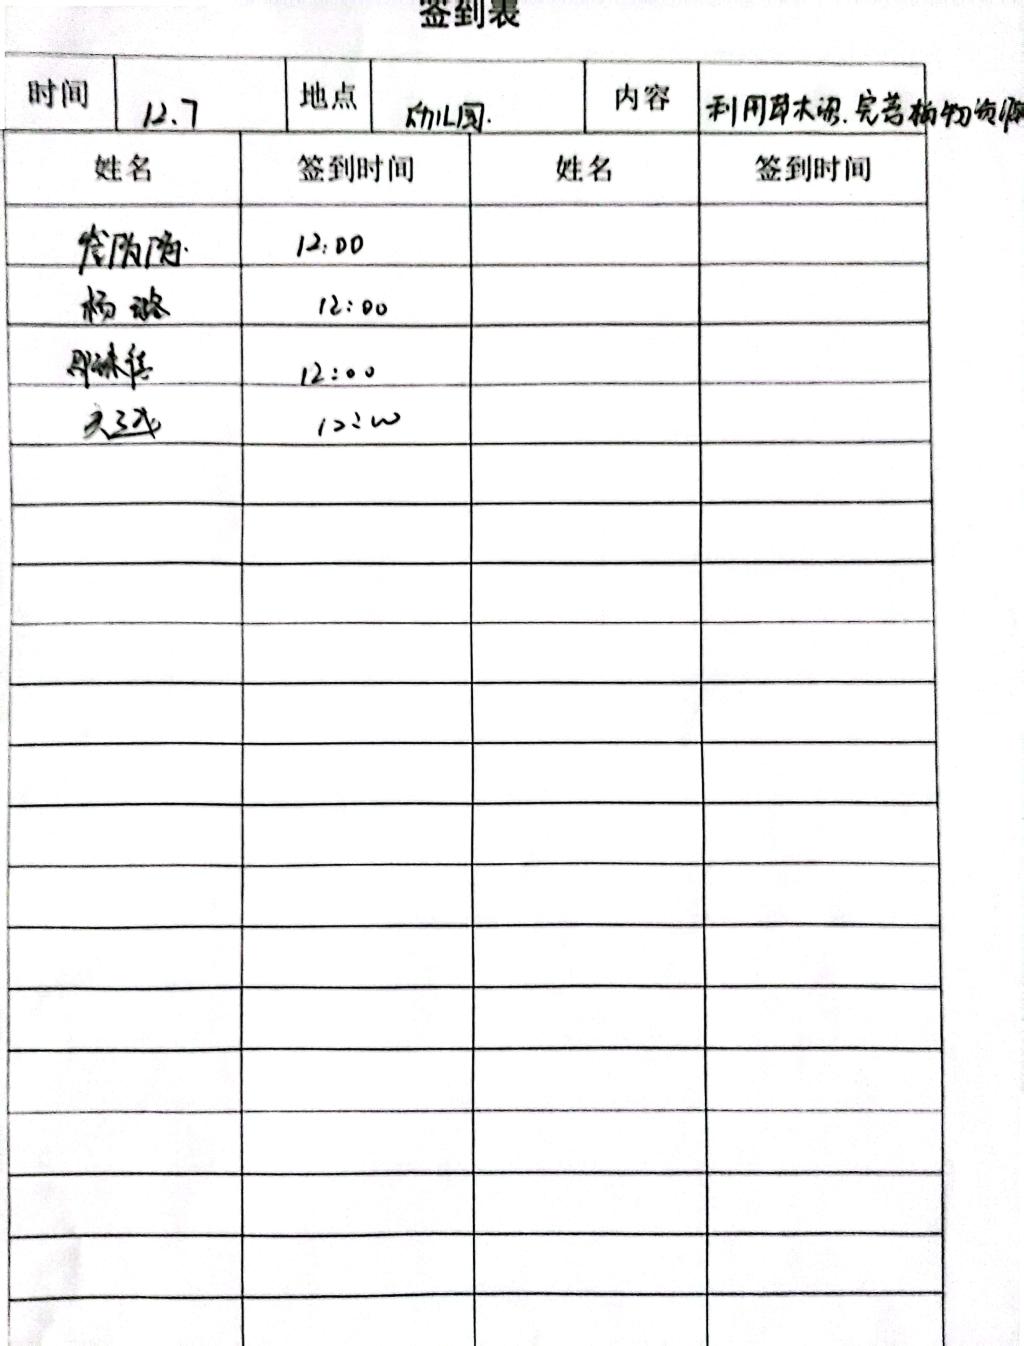 签到表
时间 12.7 地点 幼儿园. 内容 利用草木源.完善植物资源
姓名 签到时间 姓名 签到时间
12:00
杨璐 12:00
12:00
12:00